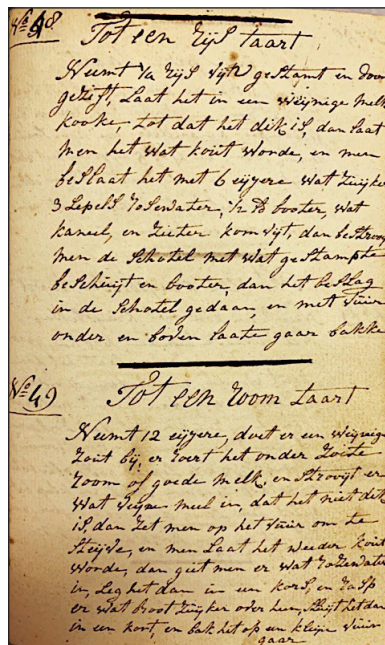 No 48
Tot een Rijs taart
Neemt ¼ Rijs fijn gestamt en door
gezift, Laat het in een weijnige melk
kooke, tot dat het dik is, dan laat
men het wat kout worde, en men
beslaat het met 6 eijyere wat zuijker
3 Lepels Rosewater, ½ lb booter, wat
kaneel, en dan bestrooijt
men de Schotel met wat gestampte
beschuijt en booter, dan het beslag
in de Schotel gedaan, en met vuur
onder en boven laate gaar bakke
No 49
Tot een room taart
Neemt 12 eijyere, doet er een weijnig
Zout bij, er roert het onder Zoete
room of goede melk, en strooijt er
wat fijne meel in, dat het niet dik
is, dan zet men op het vuur om te
Steijve, en men Laat het weeder kout
worde, dan giet men er wat rosewater
in, Leg het dan in een korst, en rasp
er wat broot Zuijker over hen, Sluijt het dan
in een korst, en bak het op een kleijn vuur
gaar